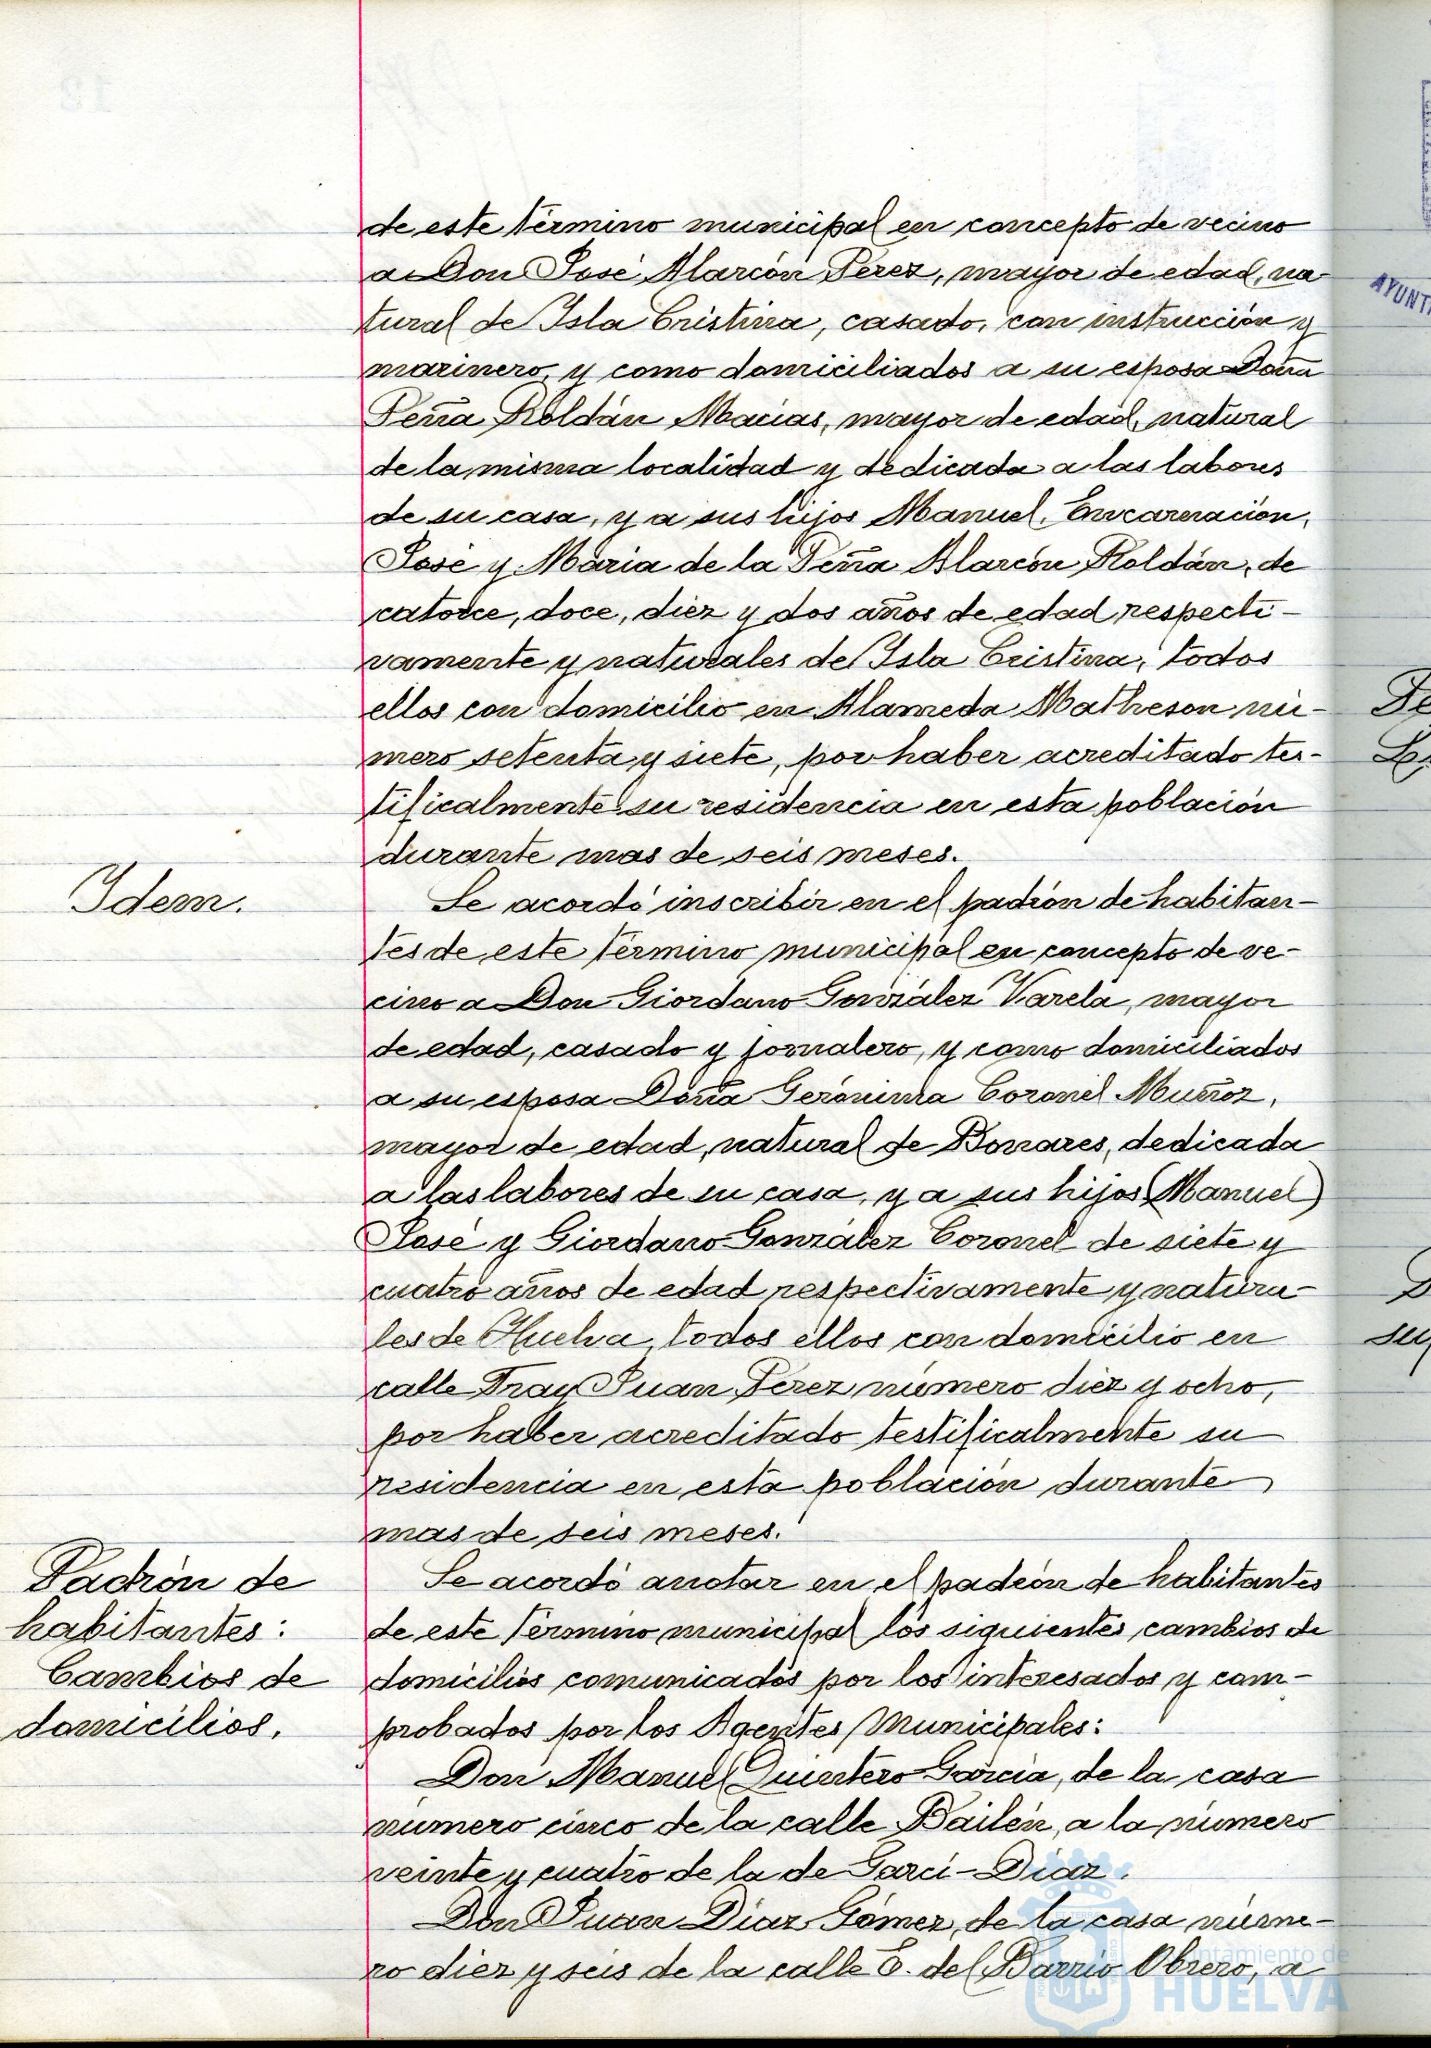 de este término municipal en concepto de vecino
a Don José Alarcón Pérez, mayor de edad, na
tural de Isla Cristina, casado, con instrucción y
marinero, y como domiciliados a su esposa Doña
Peña Roldán Macias, mayor de edad, natural
de la misma localidad y dedicada a las labores
de su casa, y a sus hijos Manuel, Encarnación,
José y Maria de la Peña Alarcón Roldán, de
catorce, doce, diez y dos años de edad respecti-
vamente y naturales de Isla Cristina, todos
ellos con domicilio en Alameda Matheson nú-
mero setenta y siete, por haber acreditado tes-
tificalmente su residencia en esta población
durante mas de seis meses.
Idem.
Se acordó inscribir en el padrón de habitan-
tes de este término municipal en concepto de ve-
cino a Don Giordano González Varela, mayor
de edad, casado y jornalero, y como domiciliados
a su esposa Doña Gerónima Coronel Muñoz,
mayor de edad, natural de Bonares, dedicada
a las labores de su casa, y a sus hijos Manuel
José y Giordano González Coronel de siete y
cuatro años de edad respectivamente y natura-
les de Huelva, todos ellos con domicilio en
calle Fray Juan Pérez número diez y ocho,
por haber acreditado testificalmente su
residencia en esta población durante
mas de seis meses.
Padrón de
habitantes:
Cambios de
domicilios.
Se acordó anotar en el padrón de habitantes
de este término municipal los siguientes cambios de
domicilios comunicados por los interesados y com-
probados por los Agentes Municipales:
Don Manuel Quintero García, de la casa
número cinco de la calle Bailén, a la número
veinte y cuatro de la de Garci-Diaz.
Don Juan Diaz Gómez, de la casa núme-
ro diez y seis de la calle E. del Barrio Obrero, a
Ayuntamiento de
HUELVA